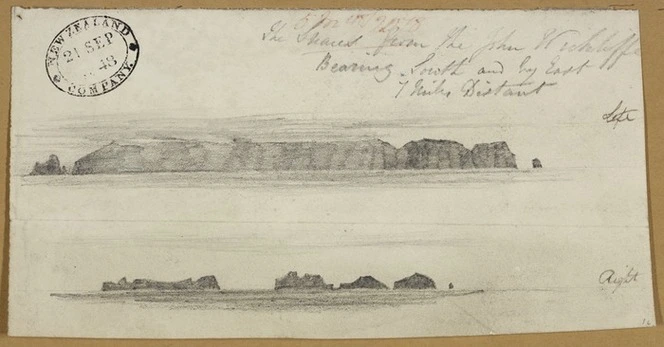 NEW ZEALAND
21 SEP
48
COMPANY
The Snares from the John Wickliffe
Bearing South and by East
7 Miles Distant
Left
Right